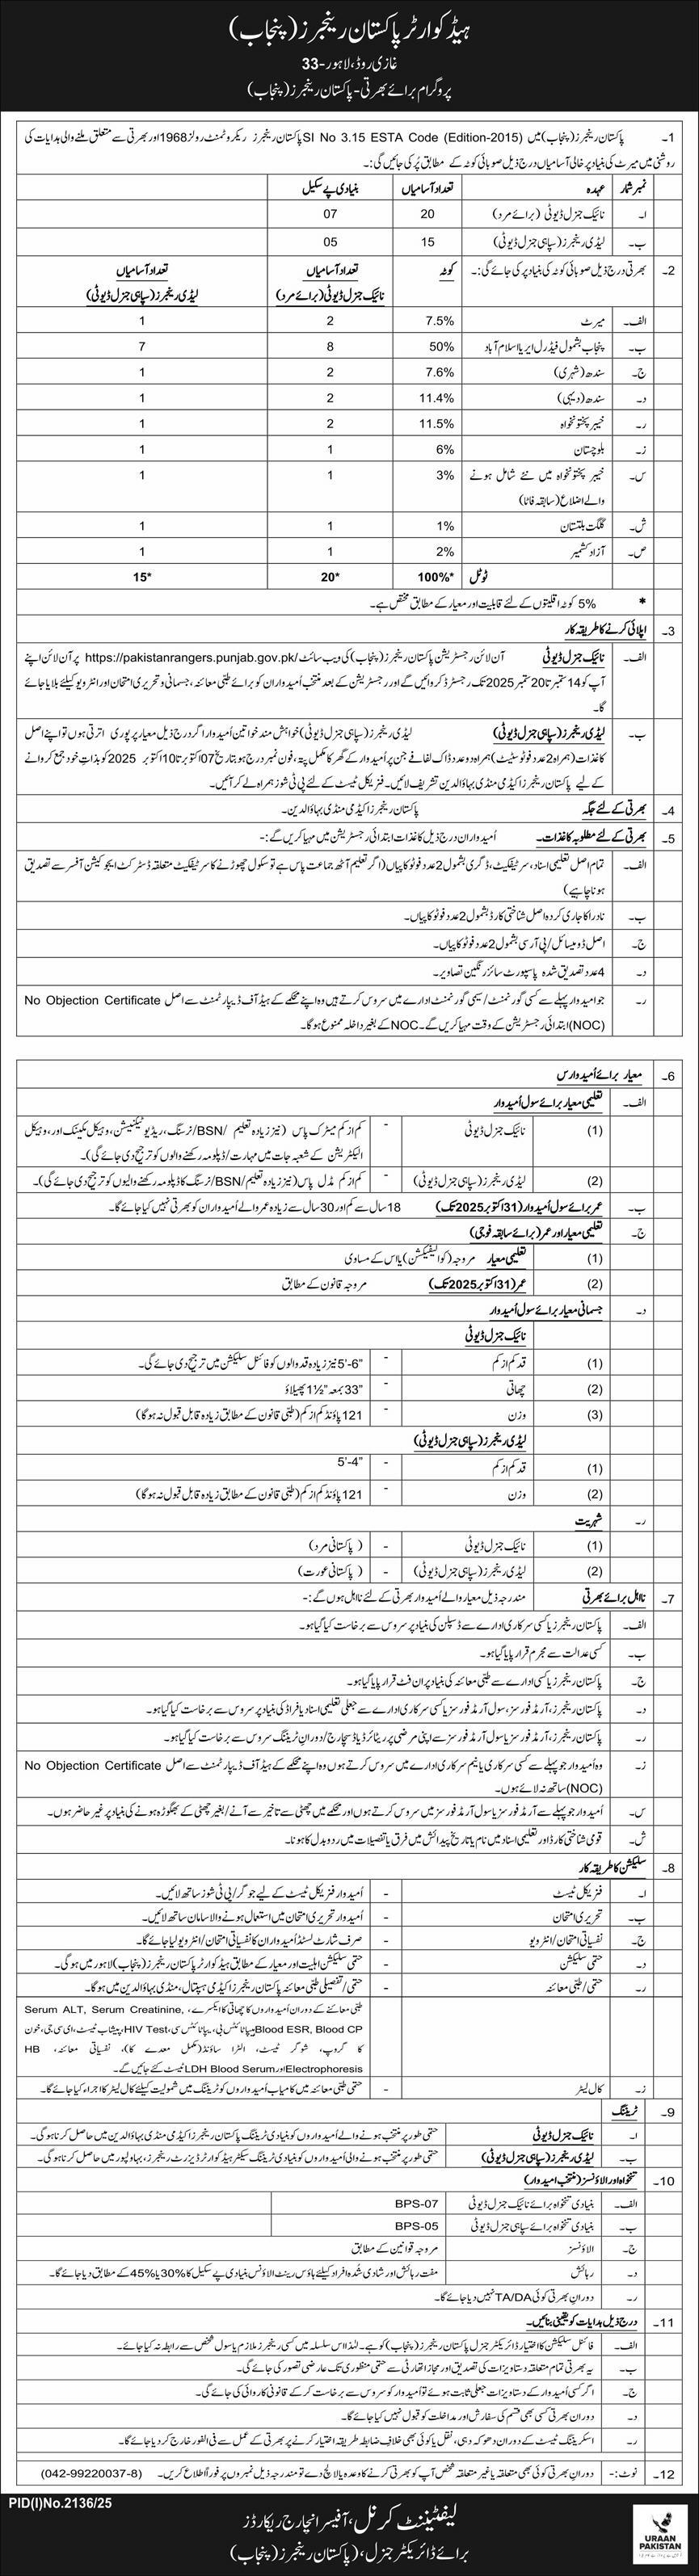 ہیڈ کوارٹر پاکستان رینجرز (پنجاب)
غازی روڈ، لاہور-33
پروگرام برائے بھرتی - پاکستان رینجرز (پنجاب)
1۔ پاکستان رینجرز (پنجاب) میں SI No 3.15 ESTA Code (Edition-2015) پاکستان رینجرز ریکروٹمنٹ رولز 1968 اور بھرتی سے متعلق ملنے والی ہدایات کی
روشنی میں میرٹ کی بنیاد پر خالی آسامیاں درج ذیل صوبائی کوٹہ کے مطابق پُر کی جائیں گی:۔
نمبر شمار عہدہ تعداد آسامیاں بنیادی پے سکیل
ا۔ نائیک جنرل ڈیوٹی (برائے مرد) 20 07
ب۔ لیڈی رینجرز (سپاہی جنرل ڈیوٹی) 15 05
2۔ بھرتی درج ذیل صوبائی کوٹہ کی بنیاد پر کی جائے گی:۔ کوٹہ تعداد آسامیاں تعداد آسامیاں
نائیک جنرل ڈیوٹی (برائے مرد) لیڈی رینجرز (سپاہی جنرل ڈیوٹی)
الف۔ میرٹ 7.5% 2 1
ب۔ پنجاب بشمول فیڈرل ایریا اسلام آباد 50% 8 7
ج۔ سندھ (شہری) 7.6% 2 1
د۔ سندھ (دیہی) 11.4% 2 1
ر۔ خیبر پختونخواہ 11.5% 2 1
ز۔ بلوچستان 6% 1 1
س۔ خیبر پختونخواہ میں نئے شامل ہونے 3% 1 1
والے اضلاع (سابقہ فاٹا)
ش۔ گلگت بلتستان 1% 1 1
ص۔ آزاد کشمیر 2% 1 1
ٹوٹل 100%* 20* 15*
* 5% کوٹہ اقلیتوں کے لئے قابلیت اور معیار کے مطابق مختص ہے۔
3۔ اپلائی کرنے کا طریقہ کار
الف۔ نائیک جنرل ڈیوٹی آن لائن رجسٹریشن پاکستان رینجرز (پنجاب) کی ویب سائٹ https://pakistanrangers.punjab.gov.pk/ پر آن لائن اپنے
آپ کو 14 ستمبر تا 20 ستمبر 2025 تک رجسٹرڈ کروائیں گے اور رجسٹریشن کے بعد منتخب اُمیدواران کو برائے طبی معائنہ، جسمانی و تحریری امتحان اور انٹرویو کیلئے بلایا جائے
گا۔
ب۔ لیڈی رینجرز (سپاہی جنرل ڈیوٹی) لیڈی رینجرز (سپاہی جنرل ڈیوٹی) خواہش مند خواتین اُمیدوار اگر درج ذیل معیار پر پوری اترتی ہوں تو اپنے اصل
کاغذات (ہمراہ 2 عدد فوٹو سٹیٹ) ہمراہ دو عدد ڈاک لفافے جن پر اُمیدوار کے گھر کا مکمل پتہ، فون نمبر درج ہو بتاریخ 07 اکتوبر تا 10 اکتوبر 2025 کو بذاتِ خود جمع کروانے
کے لیے پاکستان رینجرز اکیڈمی منڈی بہاؤالدین تشریف لائیں۔ فزیکل ٹیسٹ کے لئے پی ٹی شوز ہمراہ لے کر آئیں۔
4۔ بھرتی کے لئے جگہ پاکستان رینجرز اکیڈمی منڈی بہاؤالدین۔
5۔ بھرتی کے لئے مطلوبہ کاغذات۔ اُمیدواران درج ذیل کاغذات ابتدائی رجسٹریشن میں مہیا کریں گے:-
الف۔ تمام اصل تعلیمی اسناد، سرٹیفکیٹ، ڈگری بشمول 2 عدد فوٹو کاپیاں (اگر تعلیم آٹھ جماعت پاس ہے تو سکول چھوڑنے کا سرٹیفکیٹ متعلقہ ڈسٹرکٹ ایجوکیشن آفسر سے تصدیق
ہونا چاہیے)
ب۔ نادرا کا جاری کردہ اصل شناختی کارڈ بشمول 2 عدد فوٹو کاپیاں۔
ج۔ اصل ڈومیسائل/پی آر سی بشمول 2 عدد فوٹو کاپیاں۔
د۔ 4 عدد تصدیق شدہ پاسپورٹ سائز رنگین تصاویر۔
ر۔ جو امیدوار پہلے سے کسی گورنمنٹ/سیمی گورنمنٹ ادارے میں سروس کرتے ہیں وہ اپنے محکمے کے ہیڈ آف ڈیپارٹمنٹ سے اصل No Objection Certificate
(NOC) ابتدائی رجسٹریشن کے وقت مہیا کریں گے۔ NOC کے بغیر داخلہ ممنوع ہوگا۔
6۔ معیار برائے اُمیدوارس
الف۔ تعلیمی معیار برائے سول اُمیدوار
(1) نائیک جنرل ڈیوٹی - کم از کم میٹرک پاس (نیز زیادہ تعلیم /BSN/نرسنگ، ریڈیو ٹیکنیشن، وہیکل مکینک اور، وہیکل
الیکٹریشن کے شعبہ جات میں مہارت/ڈپلومہ رکھنے والوں کو ترجیح دی جائے گی)۔
(2) لیڈی رینجرز (سپاہی جنرل ڈیوٹی) - کم از کم مڈل پاس (نیز زیادہ تعلیم/BSN/نرسنگ کا ڈپلومہ رکھنے والیوں کو ترجیح دی جائے گی)۔
ب۔ عمر برائے سول اُمیدوار (31 اکتوبر 2025 تک) 18 سال سے کم اور 30 سال سے زیادہ عمر والے اُمیدواران کو بھرتی نہیں کیا جائے گا۔
ج۔ تعلیمی معیار اور عمر (برائے سابقہ فوجی)
(1) تعلیمی معیار مروجہ (کوالیفیکیشن) یا اس کے مساوی
(2) عمر (31 اکتوبر 2025 تک) مروجہ قانون کے مطابق
د۔ جسمانی معیار برائے سول اُمیدوار
نائیک جنرل ڈیوٹی
(1) قد کم از کم - 5'-6" نیز زیادہ قد والوں کو فائنل سلیکشن میں ترجیح دی جائے گی۔
(2) چھاتی - 33" بمعہ 1½" پھیلاؤ
(3) وزن - 121 پاؤنڈ کم از کم (طبی قانون کے مطابق زیادہ قابل قبول نہ ہوگا)
لیڈی رینجرز (سپاہی جنرل ڈیوٹی)
(1) قد کم از کم - 5'-4"
(2) وزن - 121 پاؤنڈ کم از کم (طبی قانون کے مطابق زیادہ قابل قبول نہ ہوگا)
ر۔ شہریت
(1) نائیک جنرل ڈیوٹی - (پاکستانی مرد)
(2) لیڈی رینجرز (سپاہی جنرل ڈیوٹی) - (پاکستانی عورت)
7۔ نااہل برائے بھرتی مندرجہ ذیل معیار والے اُمیدوار بھرتی کے لئے نااہل ہوں گے:-
الف۔ پاکستان رینجرز یا کسی سرکاری ادارے سے ڈسپلن کی بنیاد پر سروس سے برخاست کیا گیا ہو۔
ب۔ کسی عدالت سے مجرم قرار پایا گیا ہو۔
ج۔ پاکستان رینجرز یا کسی ادارے سے طبی معائنہ کی بنیاد پر ان فٹ قرار پایا گیا ہو۔
د۔ پاکستان رینجرز، آرمڈ فورسز، سول آرمڈ فورسز یا کسی سرکاری ادارے سے جعلی تعلیمی اسناد یا فراڈ کی بنیاد پر سروس سے برخاست کیا گیا ہو۔
ر۔ پاکستان رینجرز، آرمڈ فورسز یا سول آرمڈ فورسز سے اپنی مرضی پر ریٹائرڈ یا ڈسچارج/دوران ٹریننگ سروس سے برخاست کیا گیا ہو۔
ز۔ وہ اُمیدوار جو پہلے سے کسی سرکاری یا نیم سرکاری ادارے میں سروس کرتے ہوں وہ اپنے محکمے کے ہیڈ آف ڈیپارٹمنٹ سے اصل No Objection Certificate
(NOC) ساتھ نہ لائے ہوں۔
س۔ اُمیدوار جو پہلے سے آرمڈ فورسز یا سول آرمڈ فورسز میں سروس کرتے ہوں اور محکمے میں چھٹی سے تاخیر سے آنے/بغیر چھٹی کے بھگوڑہ ہونے کی بنیاد پر غیر حاضر ہوں۔
ش۔ قومی شناختی کارڈ اور تعلیمی اسناد میں نام یا تاریخ پیدائش میں فرق یا تفصیلات میں ردوبدل کا ہونا۔
8۔ سلیکشن کا طریقہ کار
ا۔ فزیکل ٹیسٹ - اُمیدوار فزیکل ٹیسٹ کے لیے جوگر/پی ٹی شوز ساتھ لائیں۔
ب۔ تحریری امتحان - اُمیدوار تحریری امتحان میں استعمال ہونے والا سامان ساتھ لائیں۔
ج۔ نفسیاتی امتحان/انٹرویو - صرف شارٹ لسٹڈ اُمیدواران کا نفسیاتی امتحان/انٹرویو لیا جائے گا۔
د۔ حتمی سلیکشن - حتمی سلیکشن اہلیت اور معیار کے مطابق ہیڈ کوارٹر پاکستان رینجرز (پنجاب) لاہور میں ہوگی۔
ر۔ حتمی/طبی معائنہ - حتمی/تفصیلی طبی معائنہ پاکستان رینجرز اکیڈمی ہسپتال، منڈی بہاؤالدین میں ہوگا۔
طبی معائنے کے دوران اُمیدواروں کا چھاتی کا ایکسرے، Serum ALT, Serum Creatinine,
Blood ESR, Blood CP ہیپاٹائٹس بی، ہیپاٹائٹس سی، HIV Test، پیشاب ٹیسٹ، ای سی جی، خون
کا گروپ، شوگر ٹیسٹ، الٹرا ساؤنڈ (مکمل معدے کا)، نفسیاتی معائنہ، HB
Electrophoresis اور LDH Blood Serum ٹیسٹ کئے جائیں گے۔
ز۔ کال لیٹر - حتمی طبی معائنہ میں کامیاب اُمیدواروں کو ٹریننگ میں شمولیت کیلئے کال لیٹر کا اجراء کیا جائے گا۔
9۔ ٹریننگ
ا۔ نائیک جنرل ڈیوٹی حتمی طور پر منتخب ہونے والے اُمیدواروں کو بنیادی ٹریننگ پاکستان رینجرز اکیڈمی منڈی بہاؤالدین میں حاصل کرنا ہوگی۔
ب۔ لیڈی رینجرز (سپاہی جنرل ڈیوٹی) حتمی طور پر منتخب ہونے والی اُمیدواروں کو بنیادی ٹریننگ سیکٹر ہیڈ کوارٹر ڈیزرٹ رینجرز، بہاولپور میں حاصل کرنا ہوگی۔
10۔ تنخواہ اور الاؤنسز (منتخب اُمیدوار)
الف۔ بنیادی تنخواہ برائے نائیک جنرل ڈیوٹی BPS-07
ب۔ بنیادی تنخواہ برائے سپاہی جنرل ڈیوٹی BPS-05
ج۔ الاؤنسز مروجہ قوانین کے مطابق
د۔ رہائش مفت رہائش اور شادی شُدہ افراد کیلئے ہاؤس رینٹ الاؤنس بنیادی پے سکیل کا 30% یا 45% کے مطابق دیا جائے گا۔
ر۔ دوران بھرتی کوئی TA/DA نہیں دیا جائے گا۔
11۔ درج ذیل ہدایات کو یقینی بنائیں۔
الف۔ فائنل سلیکشن کا اختیار ڈائریکٹر جنرل پاکستان رینجرز (پنجاب) کو ہے۔ لہٰذا اس سلسلہ میں کسی رینجرز ملازم یا سول شخص سے رابطہ نہ کیا جائے۔
ب۔ یہ بھرتی تمام متعلقہ دستاویزات کی تصدیق اور مجاز اتھارٹی سے حتمی منظوری تک عارضی تصور کی جائے گی۔
ج۔ اگر کسی اُمیدوار کے دستاویزات جعلی ثابت ہوئے تو اُمیدوار کو سروس سے برخاست کر کے قانونی کاروائی کی جائے گی۔
د۔ دوران بھرتی کسی بھی قسم کی سفارش اور مداخلت کو قبول نہیں کیا جائے گا۔
ر۔ اسکریننگ ٹیسٹ کے دوران دھوکہ دہی، نقل یا کوئی بھی خلافِ ضابطہ طریقہ اختیار کرنے پر بھرتی کے عمل سے فی الفور خارج کر دیا جائے گا۔
12۔ نوٹ:- دوران بھرتی کوئی بھی متعلقہ یا غیر متعلقہ شخص آپ کو بھرتی کرنے کا وعدہ یا لالچ دے تو مندرجہ ذیل نمبروں پر فوراً اطلاع کریں۔ (042-99220037-8)
PID(I)No.2136/25
لیفٹیننٹ کرنل، آفیسر انچارج ریکارڈز
برائے ڈائریکٹر جنرل، (پاکستان رینجرز (پنجاب)
URAAN
PAKISTAN